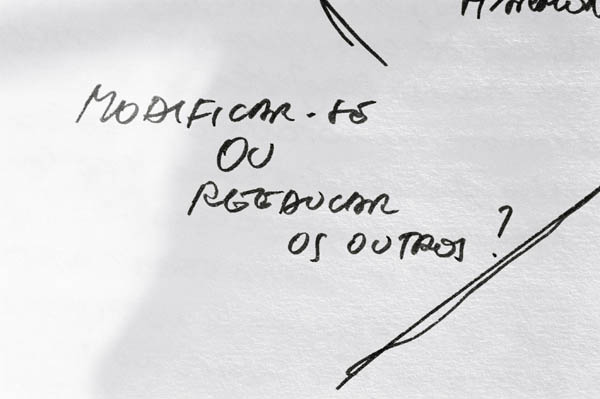 MODIFICAR-SE
OU
REEDUCAR
OS OUTROS?